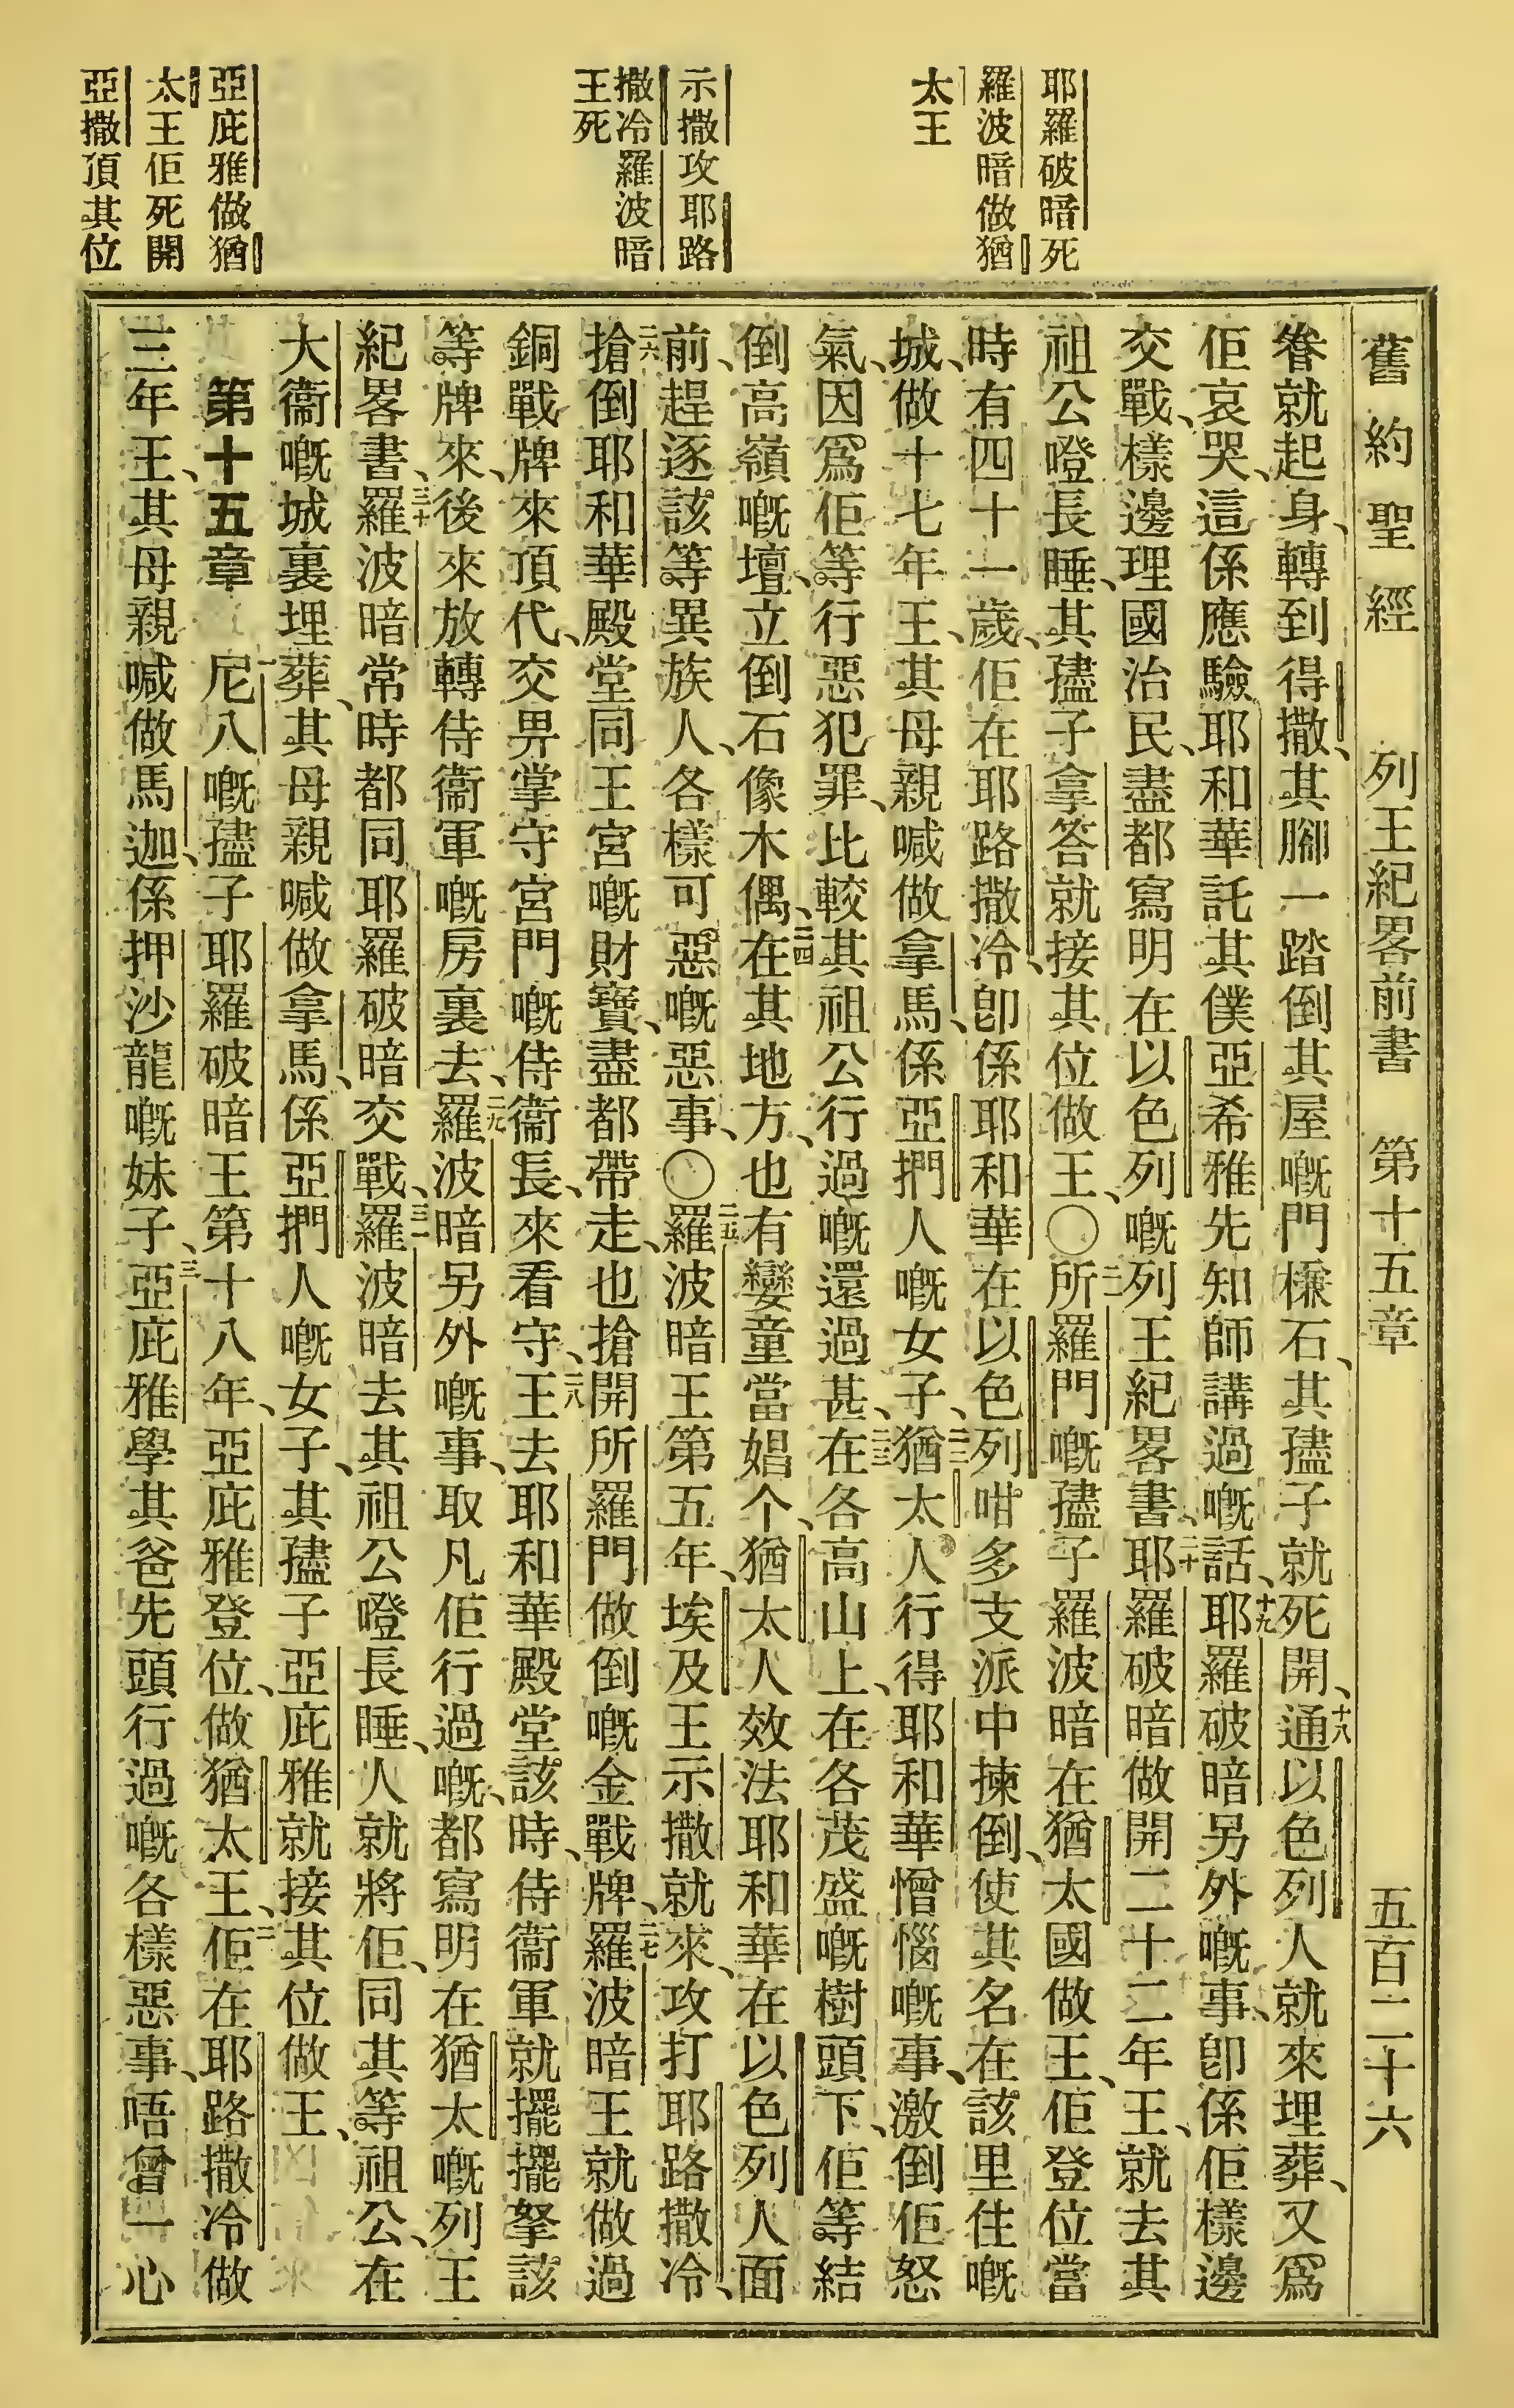 耶羅破暗死
羅波暗做猶
太王
示撒攻耶路
撒冷羅波暗
王死
亞庇雅做猶
太王佢死開
亞撒頂其位
舊約聖經 列王紀畧前書 第十五章 五百二十六
眷就起身、轉到得撒、其腳一踏倒其屋嘅門檻石、其孻子就死開、十八通以色列人就來埋葬、又爲
佢哀哭、這係應驗耶和華託其僕亞希雅先知師講過嘅話、十九耶羅破暗另外嘅事、卽係佢樣邊
交戰、樣邊理國治民、盡都寫明在以色列嘅列王紀畧書、二十耶羅破暗做開二十二年王、就去其
祖公瞪長睡、其孻子拿答就接其位做王、〇二一所羅門嘅孻子羅波暗在猶太國做王、佢登位當
時有四十一歲、佢在耶路撒冷、卽係耶和華在以色列咁多支派中揀倒、使其名在該里住嘅
城、做十七年王、其母親喊做拿馬、係亞捫人嘅女子、二二猶太人行得耶和華憎惱嘅事、激倒佢怒
氣、因爲佢等行惡犯罪、比較其祖公行過嘅還過甚、二三在各高山上、在各茂盛嘅樹頭下、佢等結
倒高嶺嘅壇、立倒石像木偶、二四在其地方、也有孌童當娼个、猶太人效法耶和華在以色列人面
前、趕逐該等異族人、各樣可惡嘅惡事、〇二五羅波暗王第五年、埃及王示撒就來、攻打耶路撒冷、
二六搶倒耶和華殿堂同王宮嘅財寶、盡都帶走、也搶開所羅門做倒嘅金戰牌、二七羅波暗王就做過
銅戰牌來頂代、交畀掌守宮門嘅侍衞長、來看守、二八王去耶和華殿堂該時、侍衞軍就擺擺拏該
等牌來、後來放轉侍衞軍嘅房裏去、二九羅波暗另外嘅事、取凡佢行過嘅、都寫明在猶太嘅列王
紀畧書、三十羅波暗常時都同耶羅破暗交戰、三一羅波暗去其祖公瞪長睡、人就將佢、同其等祖公、在
大衞嘅城裏埋葬、其母親喊做拿馬、係亞捫人嘅女子、其孻子亞庇雅就接其位做王、
第十五章 一尼八嘅孻子耶羅破暗王第十八年、亞庇雅登位、做猶太王、二佢在耶路撒冷做
三年王、其母親喊做馬迦、係押沙龍嘅妹子、三亞庇雅學其爸先頭行過嘅各樣惡事、唔曾一心